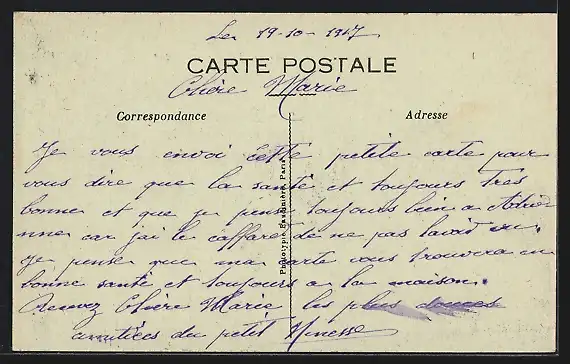 Le 19-10-1917
CARTE POSTALE
Chère Marie
Correspondance
Adresse
Je vous envoi cette petite carte pour
vous dire que la santé et toujours très
bonne et que je pense toujours bien a Adrie
nne car jai le de ne pas lavoir vu.
Je pense que ma carte vous trouvera en
bonne santé et toujours a la maison.
Recevez Chère Marie les plus douces
amitiées du petit Ninesse
Phototypie Baudinière Paris